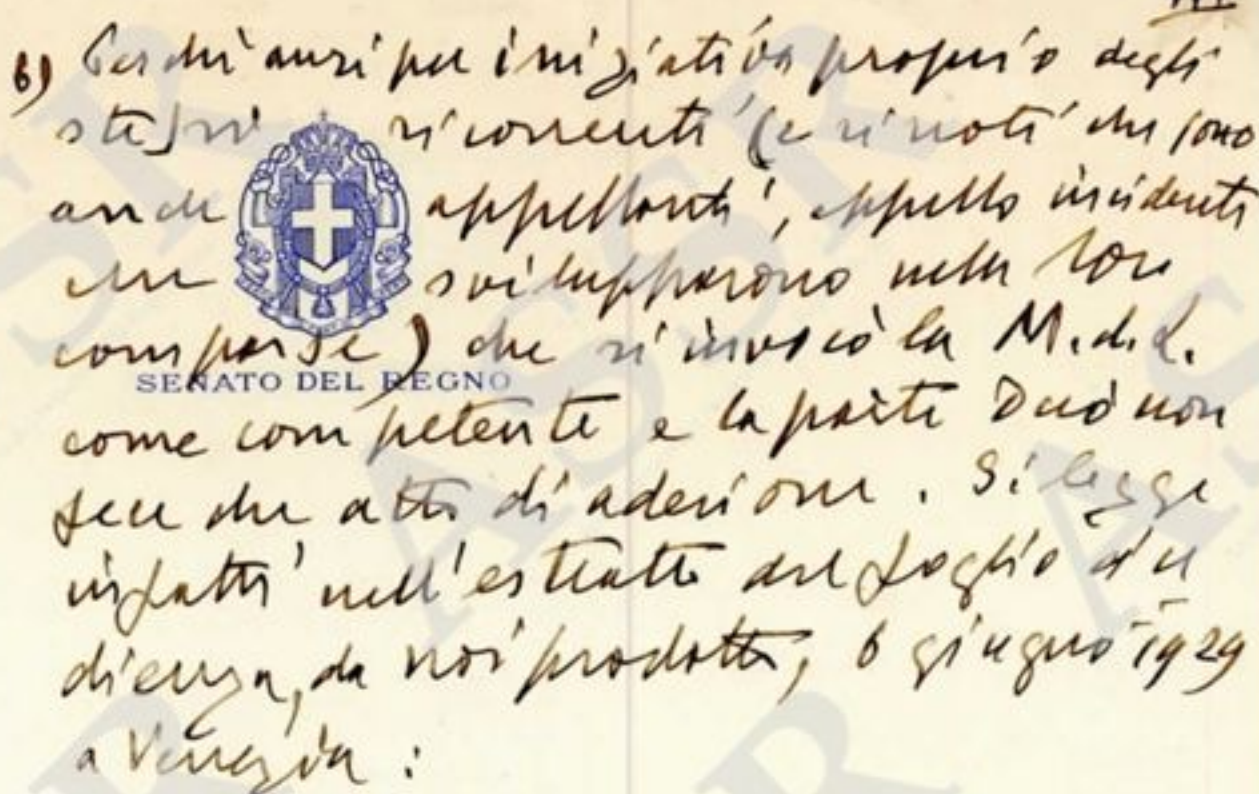 6) Perchè anzi per iniziativa proprio degli
stessi ricorrenti (e si noti che sono
anche appellanti, appello incidente
che svilupparono nelle loro
comparse) che si invocò la M.d.L.
SENATO DEL REGNO
come competente e la parte Duò non
fece che atto di adesione. Si legge
infatti nell'estratto del foglio d'u
dienza, da noi prodotto, 6 giugno 1929
a Venezia: